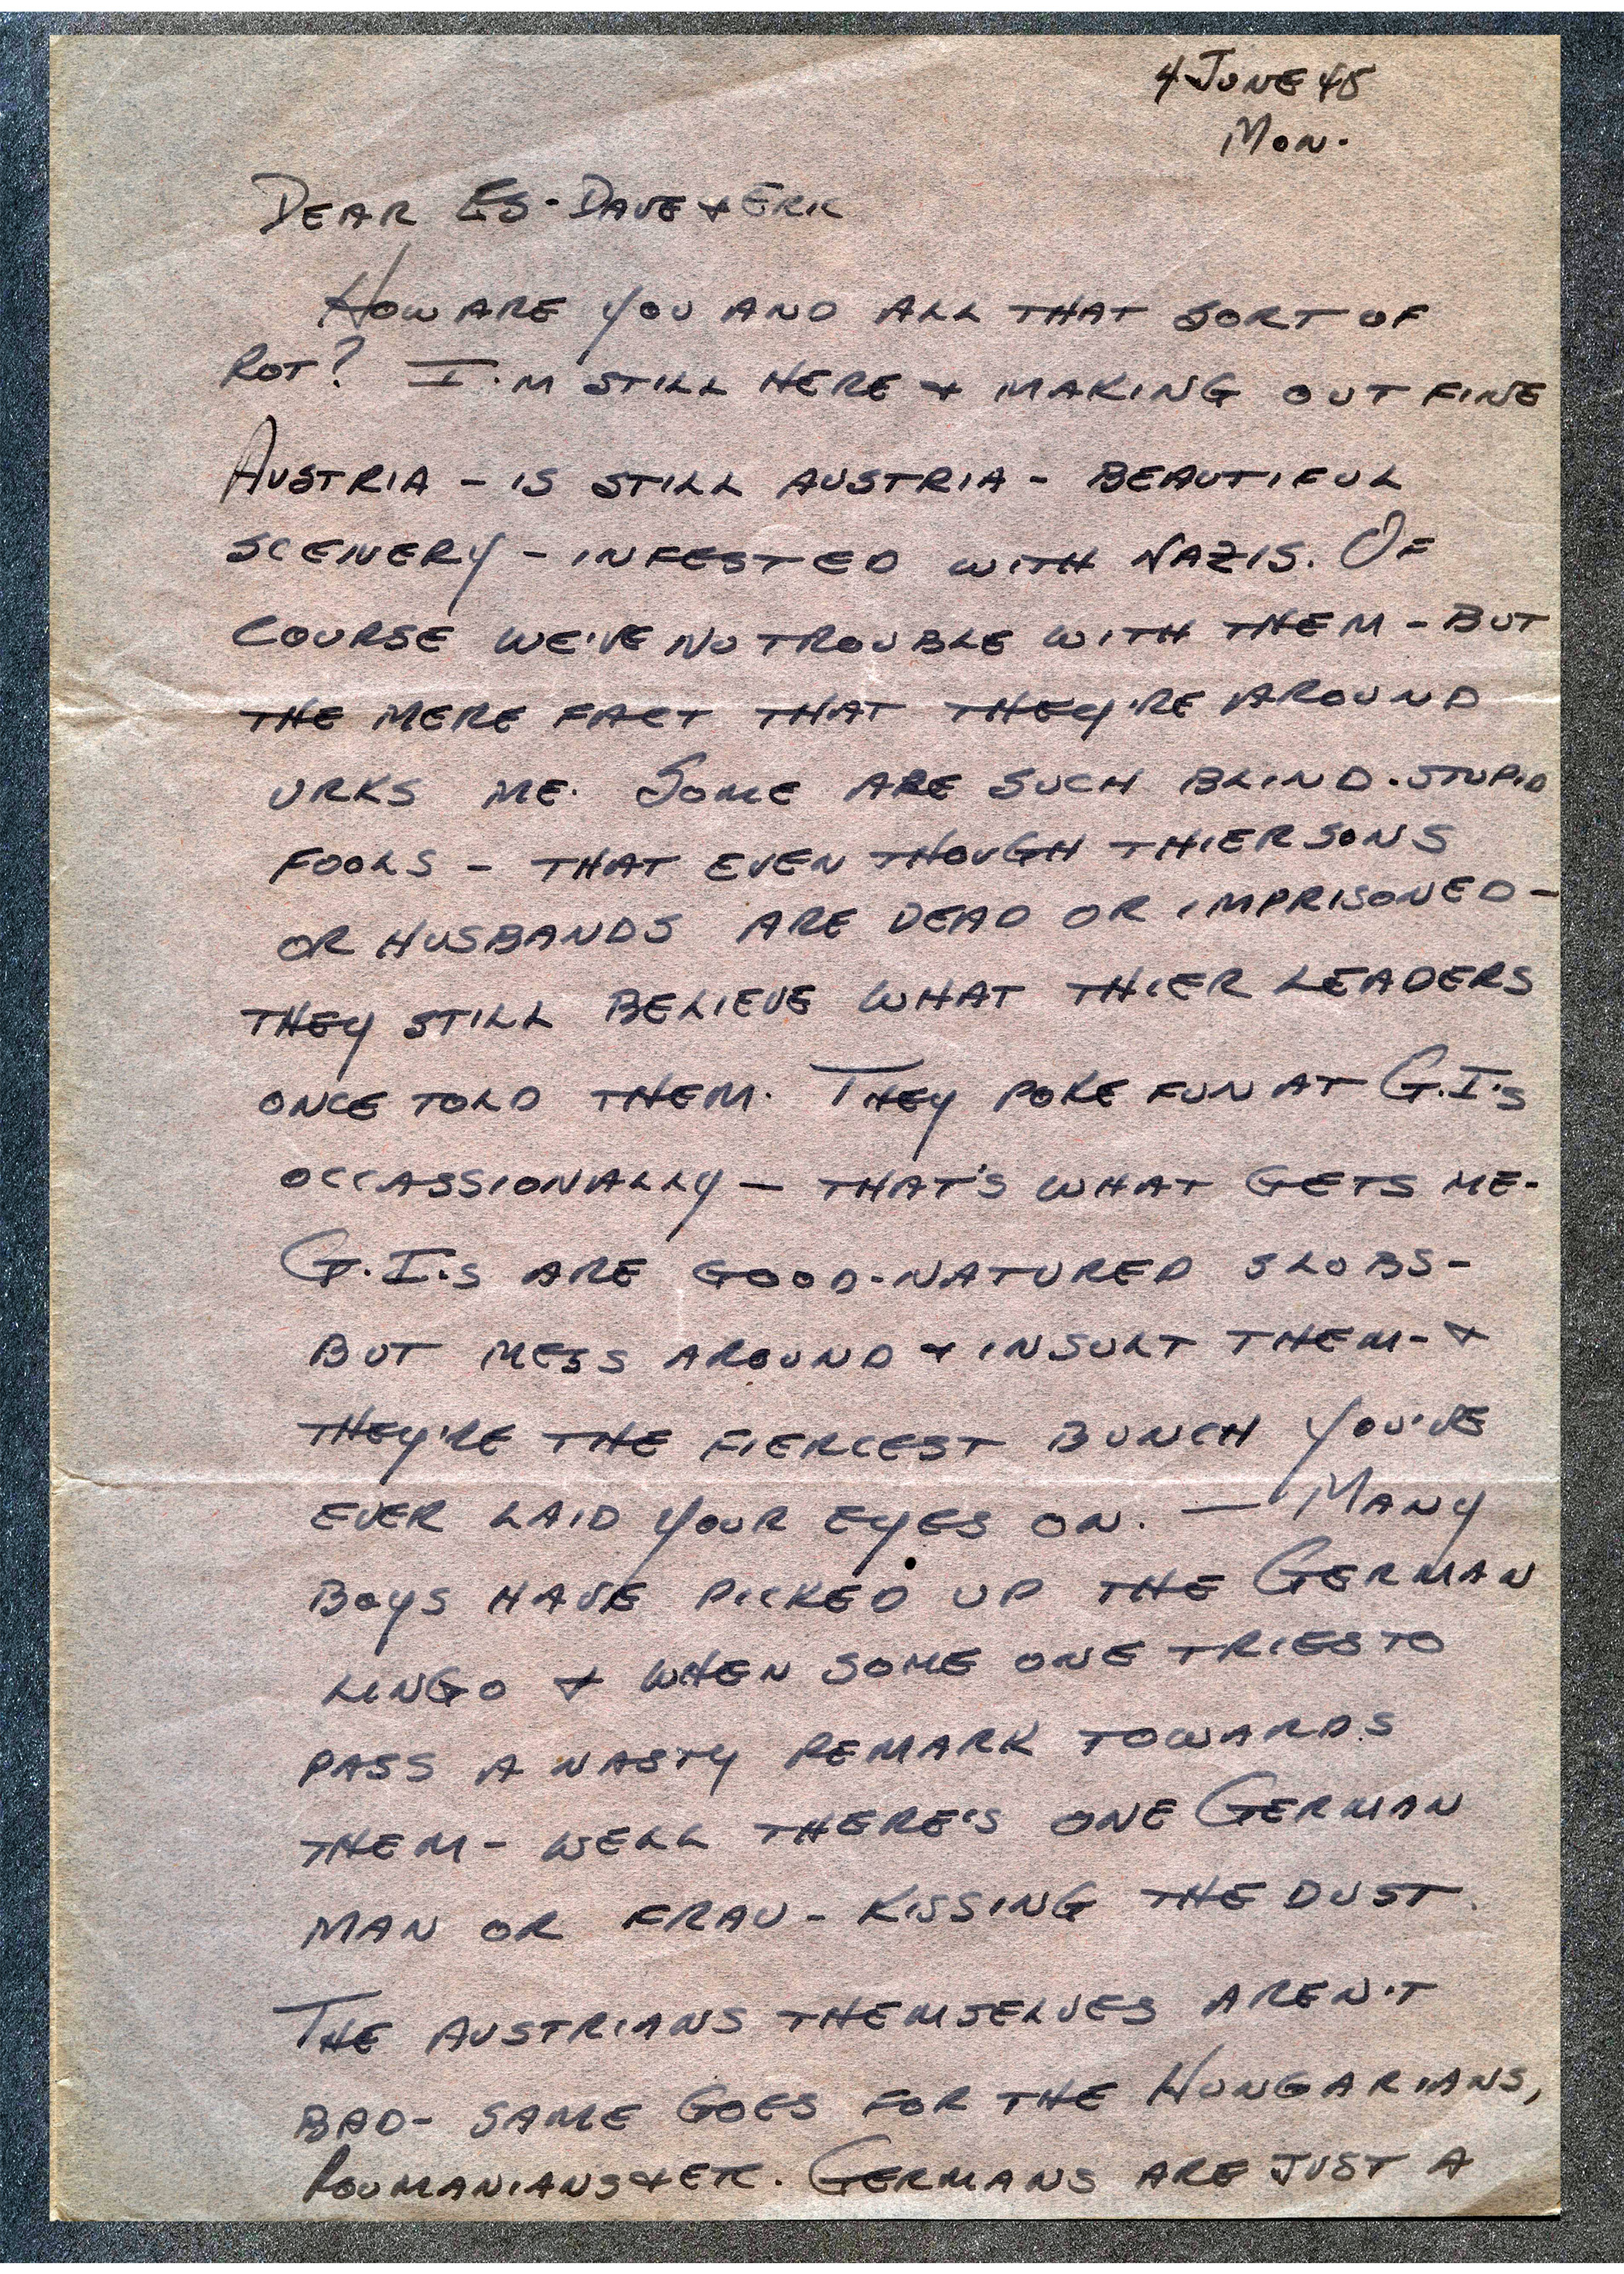 4 JUNE 45
MON.
DEAR ES - DAVE & ERIC
HOW ARE YOU AND ALL THAT SORT OF
ROT? I'M STILL HERE & MAKING OUT FINE
AUSTRIA - IS STILL AUSTRIA - BEAUTIFUL
SCENERY - INFESTED WITH NAZIS. OF
COURSE WE'VE NO TROUBLE WITH THEM - BUT
THE MERE FACT THAT THEY'RE AROUND
URKS ME. SOME ARE SUCH BLIND - STUPID
FOOLS - THAT EVEN THOUGH THIER SONS
OR HUSBANDS ARE DEAD OR IMPRISONED -
THEY STILL BELIEVE WHAT THIER LEADERS
ONCE TOLD THEM. THEY POKE FUN AT G.I.'s
OCCASSIONALLY - THAT'S WHAT GETS ME -
G.I.'s ARE GOOD-NATURED SLOBS -
BUT MESS AROUND & INSULT THEM - &
THEY'RE THE FIERCEST BUNCH YOU'VE
EVER LAID YOUR EYES ON. — MANY
BOYS HAVE PICKED UP THE GERMAN
LINGO & WHEN SOME ONE TRIES TO
PASS A NASTY REMARK TOWARDS
THEM - WELL THERE'S ONE GERMAN
MAN OR FRAU - KISSING THE DUST.
THE AUSTRIANS THEMSELVES AREN'T
BAD - SAME GOES FOR THE HUNGARIANS,
ROUMANIANS & ETC. GERMANS ARE JUST A